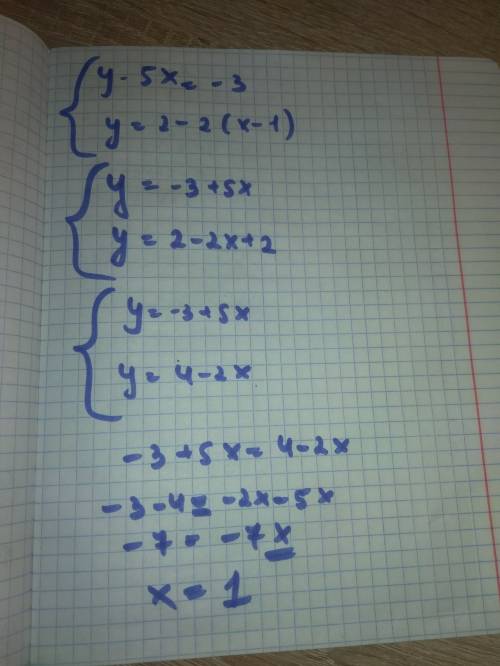 y - 5x = -3
y = 2 - 2(x-1)
y = -3 + 5x
y = 2 - 2x + 2
y = -3 + 5x
y = 4 - 2x
-3 + 5x = 4 - 2x
-3 - 4 = -2x - 5x
-7 = -7x
x = 1